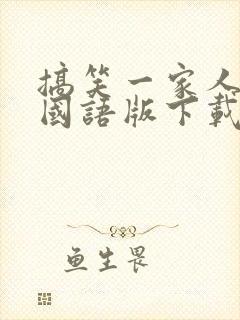 搞笑一家人
國語版下載
鱼生畏